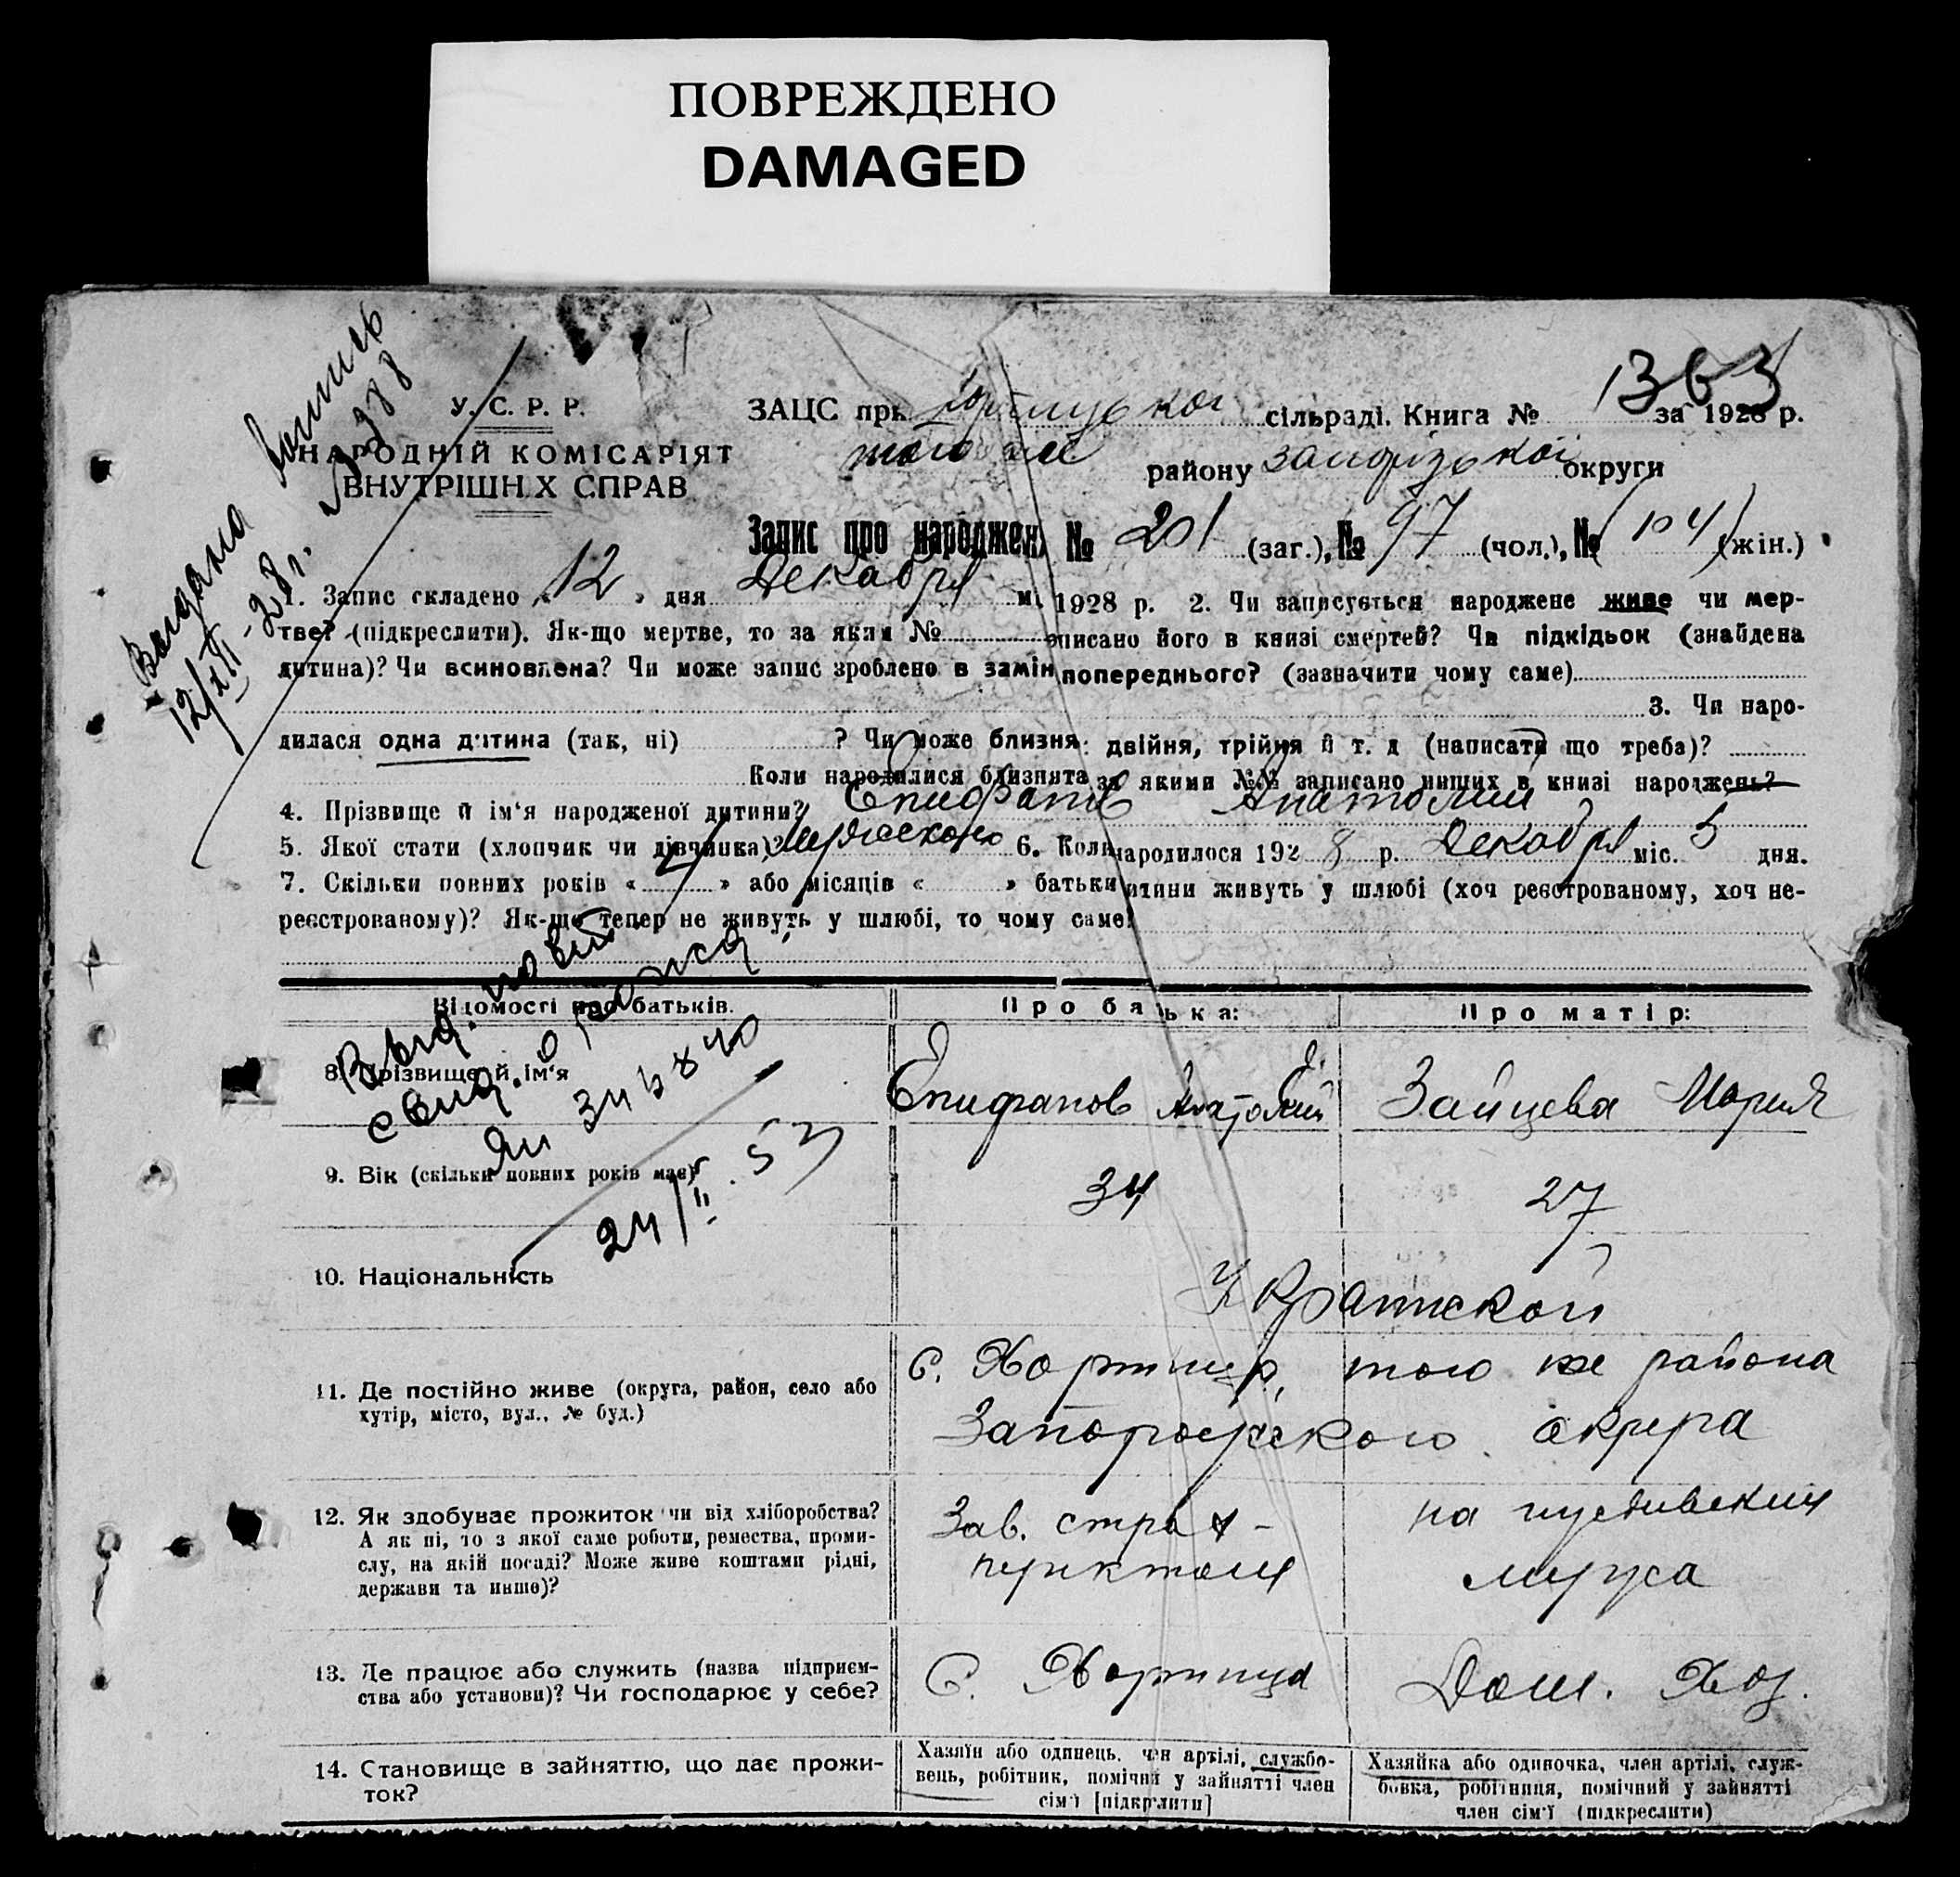 ПОВРЕЖДЕНО
DAMAGED
1363
У. С. Р. Р.
НАРОДНІЙ КОМІСАРІЯТ
ВНУТРІШН.Х СПРАВ
ЗАЦС при сільраді. Книга № за 1928 р.
того же району Запорізької округи
Запис про народжен. № 201 (заг.), № 97 (чол.), № (104) (жін.)
1. Запис складено « 12 » дня Декабря м. 1928 р. 2. Чи записується народжене живе чи мер-
тве? (підкреслити). Як-що мертве, то за яким № записано його в книзі смертей? Чи підкідьок (знайдена
дитина)? Чи всиновлена? Чи може запис зроблено в замін попереднього? (зазначити чому саме)
3. Чи наро-
дилася одна дитина (так, ні) ? Чи може близня: двійня, трійня й т. д (написати що треба)?
Коли народилися близнята за якими №№ записано инших в книзі народжень?
4. Прізвище й ім'я народженої дитини? Епифанов Анатолий
5. Якої стати (хлопчик чи дівчинка)? мужского 6. Коли народилося 1928 р. Декабря міс. 5 дня.
7. Скільки повних років « » або місяців « » батьки дитини живуть у шлюбі (хоч реєстрованому, хоч не-
реєстрованому)? Як-що тепер не живуть у шлюбі, то чому саме?
Видано
12/XII-28 г.
Выд. повт.
свид. о
ЯИ
24/II. 53
Відомості про батьків. Про батька: Про матір:
8. Прізвище й ім'я Епифанов Анатолий Зайцева Мария
9. Вік (скільки повних років має) 34 27
10. Національність Украинской
11. Де постійно живе (округа, район, село або
хутір, місто, вул., № буд.)
С. Хортица, того же района
Запорожского округа
12. Як здобуває прожиток чи від хліборобства?
А як ні, то з якої саме роботи, ремества, проми-
слу, на якій посаді? Може живе коштами рідні,
держави та инше)?
Зав. страх-
пунктом
на иждивении
мужа
13. Де працює або служить (назва підприєм-
ства або установи)? Чи господарює у себе?
С. Хортица Дом. Хоз.
14. Становище в зайняттю, що дає прожи-
ток?
Хазяїн або одинець, член артілі, службо-
вець, робітник, помічний у зайнятті член
сім'ї [підкреслити]
Хазяйка або одиночка, член артілі, служ-
бовка, робітниця, помічний у зайнятті
член сім'ї (підкреслити)